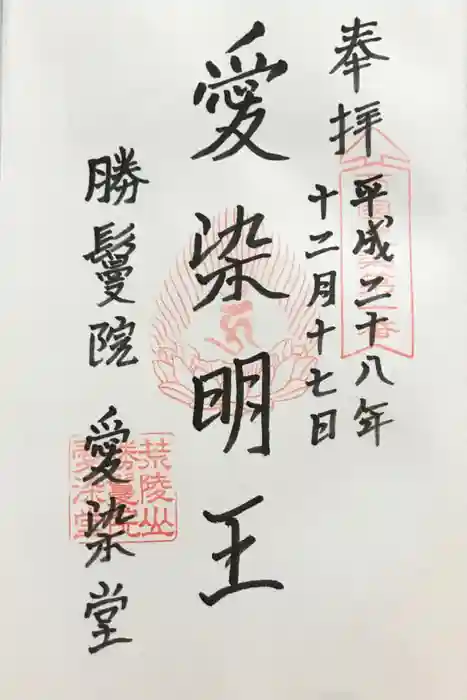 奉拝
平成二十八年
十二月十七日
愛染明王
勝鬘院 愛染堂
荒陵山
勝鬘院
愛染堂